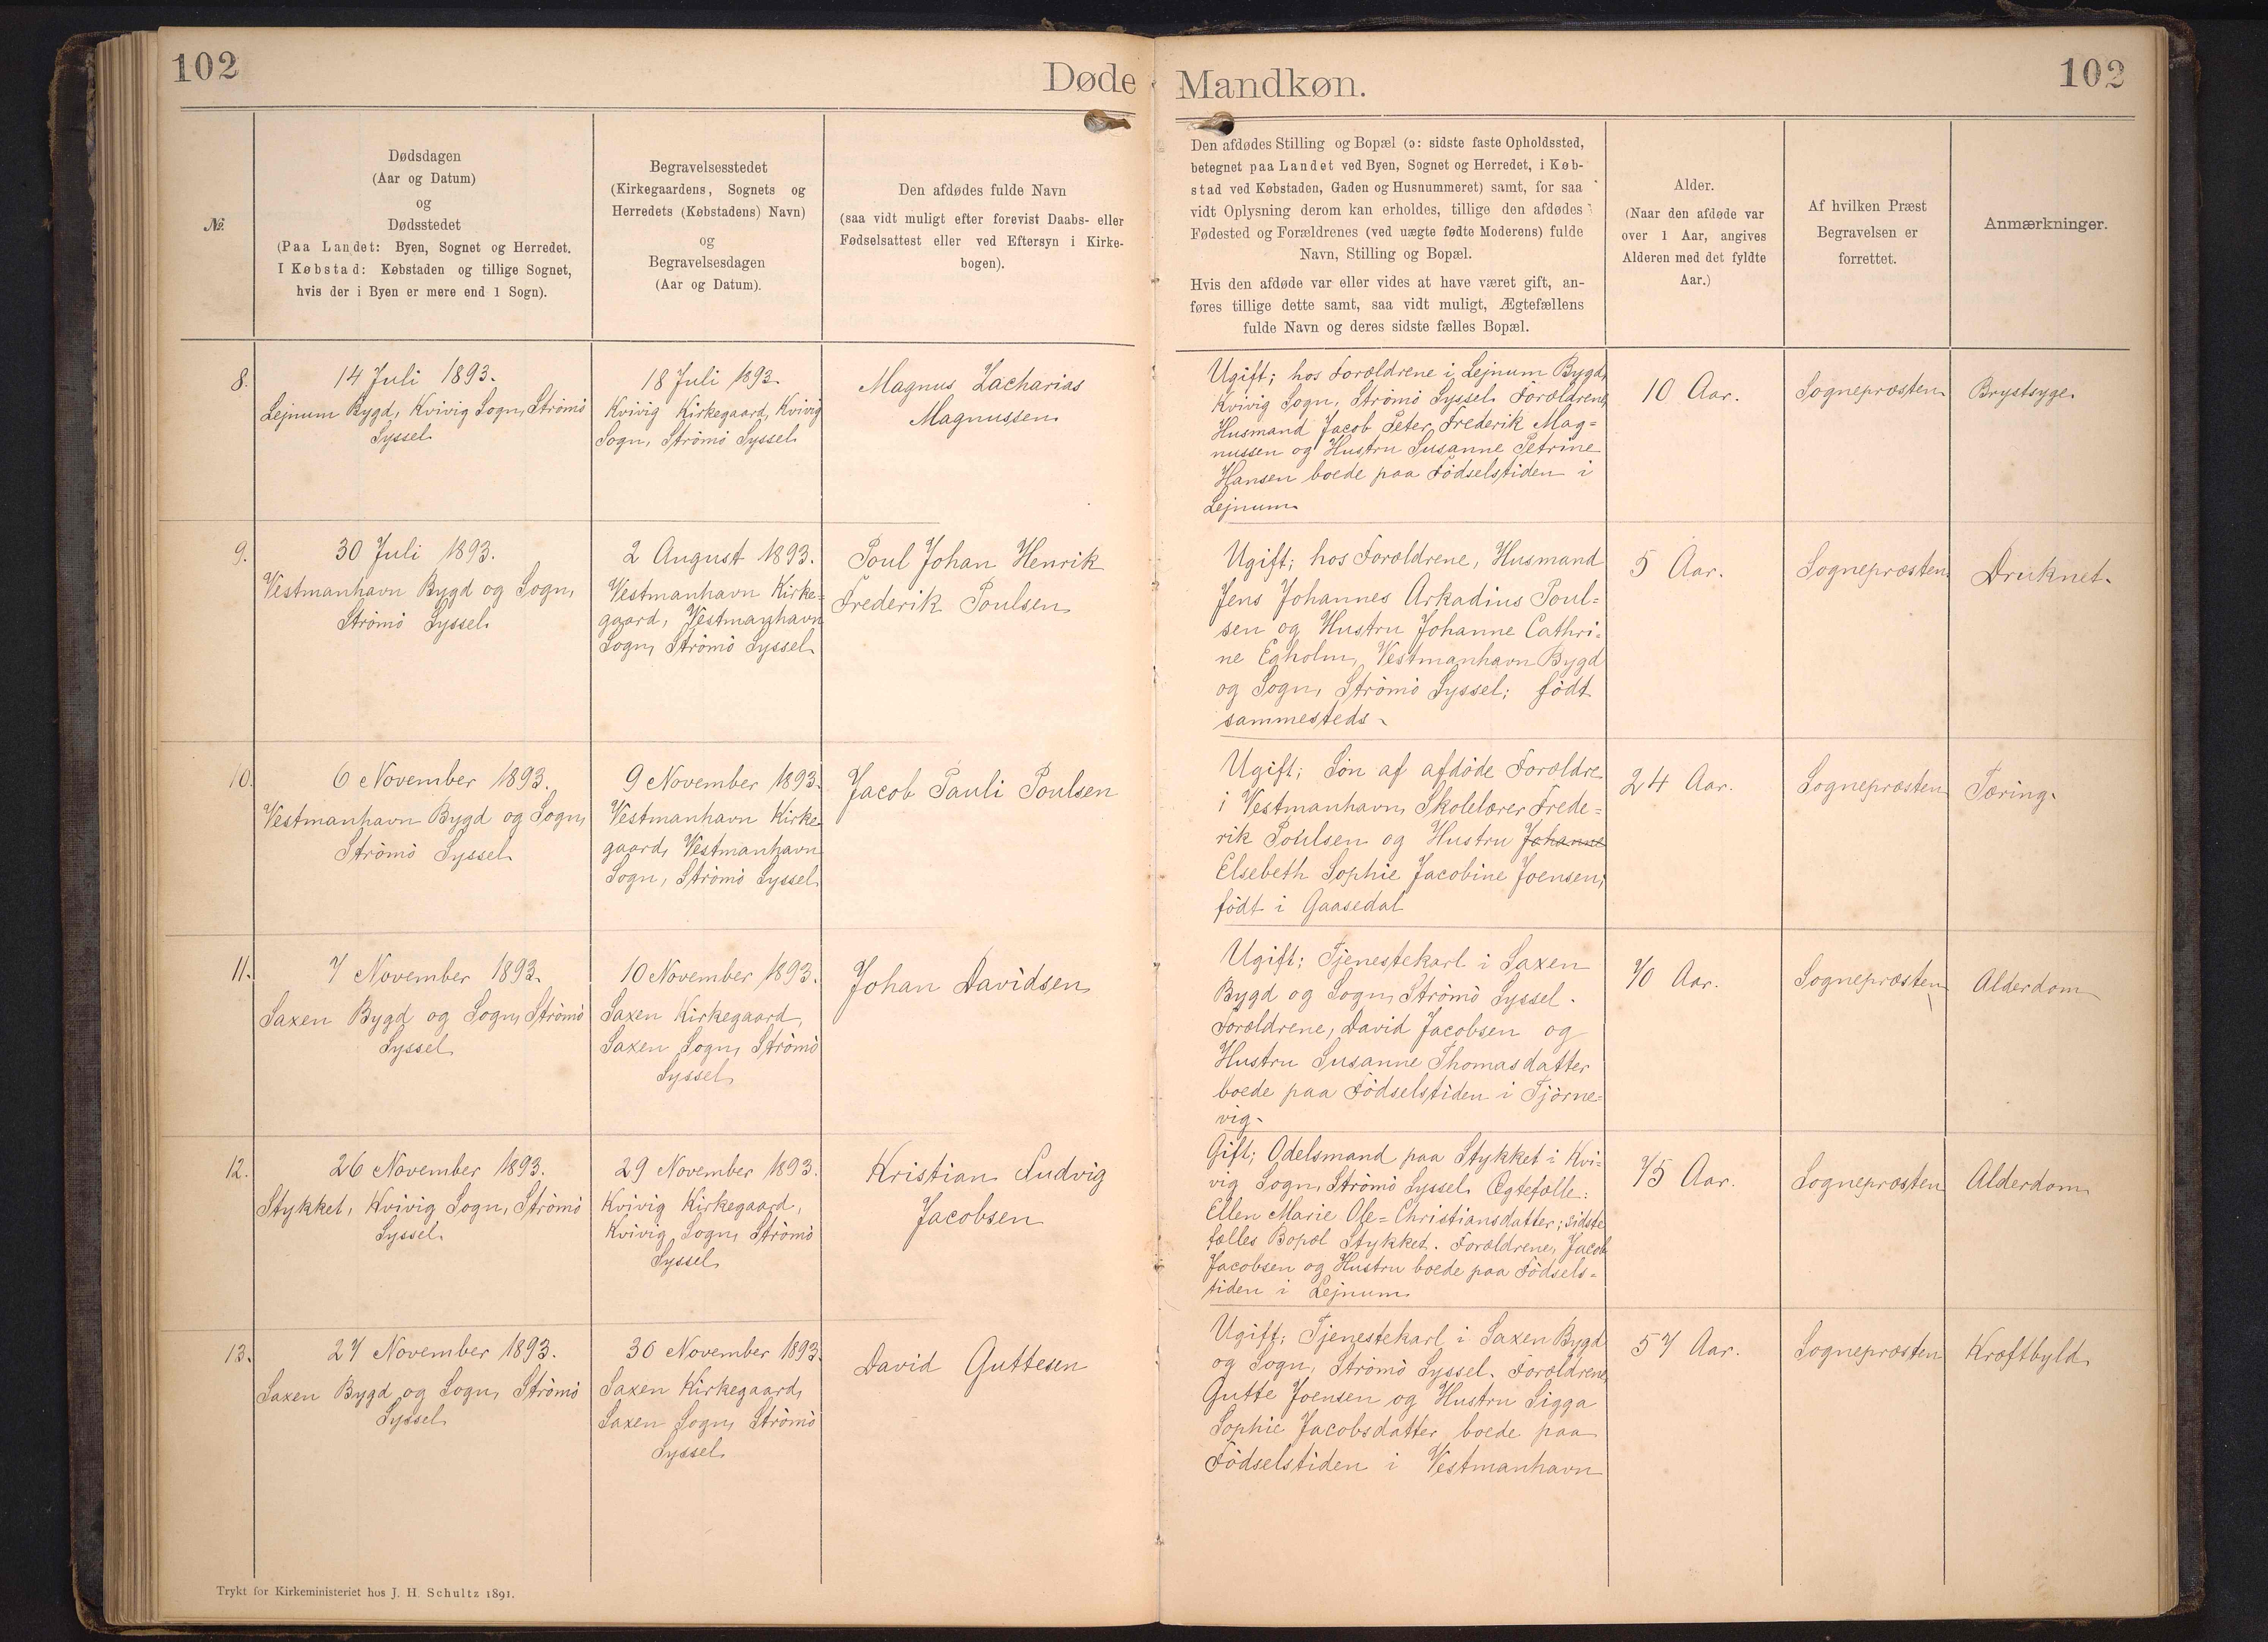 102
Døde
Mandkøn.
102
№.
Dødsdagen
(Aar og Datum)
og
Dødsstedet
(Paa Landet: Byen, Sognet og Herredet.
I Købstad: Købstaden og tillige Sognet,
hvis der i Byen er mere end 1 Sogn).
Begravelsesstedet
(Kirkegaardens, Sognets og
Herredets (Købstadens) Navn)
og
Begravelsesdagen
(Aar og Datum).
Den afdødes fulde Navn
(saa vidt muligt efter forevist Daabs- eller
Fødselsattest eller ved Eftersyn i Kirke-
bogen).
Den afdødes Stilling og Bopæl (ɔ: sidste faste Opholdssted,
betegnet paa Landet ved Byen, Sognet og Herredet, i Køb-
stad ved Købstaden, Gaden og Husnummeret) samt, for saa
vidt Oplysning derom kan erholdes, tillige den afdødes
Fødested og Forældrenes (ved uægte fødte Moderens) fulde
Navn, Stilling og Bopæl.
Hvis den afdøde var eller vides at have været gift, an-
føres tillige dette samt, saa vidt muligt, Ægtefællens
fulde Navn og deres sidste fælles Bopæl.
Alder.
(Naar den afdøde var
over 1 Aar, angives
Alderen med det fyldte
Aar.)
Af hvilken Præst
Begravelsen er
forrettet.
Anmærkninger.
8.
14 Juli 1893.
Lejnum Bygd, Kvivig Sogn, Strömö
Syssel.
18 Juli 1893.
Kvivig Kirkegaard, Kvivig
Sogn, Strömö Syssel.
Magnus Zacharias
Magnussen.
Ugift; hos Forældrene i Lejnum Bygd,
Kvivig Sogn, Strömö Syssel. Forældrene,
Husmand Jacob Peter Frederik Mag=
nussen og Hustru Susanne Petrine
Hansen boede paa Födselstiden i
Lejnum.
10 Aar.
Sognepræsten.
Brystsyge.
9.
30 Juli 1893.
Vestmanhavn Bygd og Sogn,
Strömö Syssel.
2 August 1893.
Vestmanhavn Kirke=
gaard, Vestmanhavn
Sogn, Strömö Syssel.
Poul Johan Henrik
Frederik Poulsen.
Ugift; hos Forældrene, Husmand
Jens Johannes Arkadius Poul=
sen og Hustru Johanne Cathri=
ne Egholm, Vestmanhavn Bygd
og Sogn, Strömö Syssel; født
sammesteds.
5 Aar.
Sognepræsten.
Druknet.
10.
6 November 1893.
Vestmanhavn Bygd og Sogn,
Strömö Syssel.
9 November 1893.
Vestmanhavn Kirke=
gaard, Vestmanhavn
Sogn, Strömö Syssel.
Jacob Pauli Poulsen
Ugift; Sön af afdöde Forældre
i Vestmanhavn, Skolelærer Frede=
rik Poulsen og Hustru Johanne
Elsebeth Sophie Jacobine Joensen;
født i Gaasedal
24 Aar.
Sognepræsten
Tæring.
11.
7 November 1893.
Saxen Bygd og Sogn, Strömö
Syssel.
10 November 1893.
Saxen Kirkegaard,
Saxen Sogn, Strömö
Syssel.
Johan Davidsen.
Ugift; Tjenestekarl i Saxen
Bygd og Sogn, Strömö Syssel.
Forældrene, David Jacobsen og
Hustru Susanne Thomasdatter
boede paa Födselstiden i Tjörne=
vig.
70 Aar.
Sognepræsten
Alderdom
12.
26 November 1893.
Stykket, Kvivig Sogn, Strömö
Syssel.
29 November 1893.
Kvivig Kirkegaard,
Kvivig Sogn, Strömö
Syssel.
Kristian Ludvig
Jacobsen
Gift; Odelsmand paa Stykket i Kvi=
vig Sogn, Strömö Syssel. Ægtefælle:
Ellen Marie Ole=Christiansdatter; sidste
fælles Bopæl Stykket. Forældrene, Jacob
Jacobsen og Hustru boede paa Födsels=
tiden i Lejnum.
75 Aar.
Sognepræsten
Alderdom.
13.
27 November 1893.
Saxen Bygd og Sogn, Strömö
Syssel.
30 November 1893.
Saxen Kirkegaard,
Saxen Sogn, Strömö
Syssel.
David Guttesen
Ugift; Tjenestekarl i Saxen Bygd
og Sogn, Strömö Syssel. Forældrene,
Gutte Joensen og Hustru Sigga
Sophie Jacobsdatter boede paa
Födselstiden i Vestmanhavn
57 Aar.
Sognepræsten
Kræftbyld.
Trykt for Kirkeministeriet hos J. H. Schultz 1891.